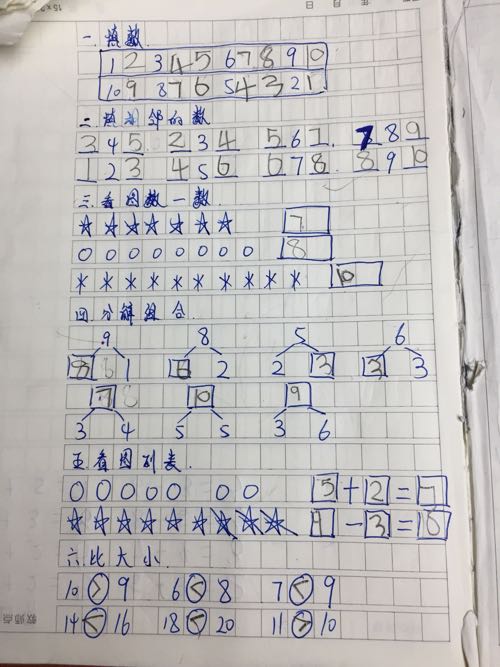 一.填数.
1 2 3 4 5 6 7 8 9 10
10 9 8 7 6 5 4 3 2 1
二.填相邻的数
3 4 5. 2 3 4 5 6 7. 7 8 9
1 2 3 4 5 6 6 7 8 8 9 10
三.看图数一数
7
8
10
四.分解组合.
9 8 5 6
8 1 6 2 2 3 3 3
7 10 9
3 4 5 5 3 6
五看图列表.
5+2=7
-3=
六.比大小
10>9 6<8 7<9
14<16 18<20 11>10